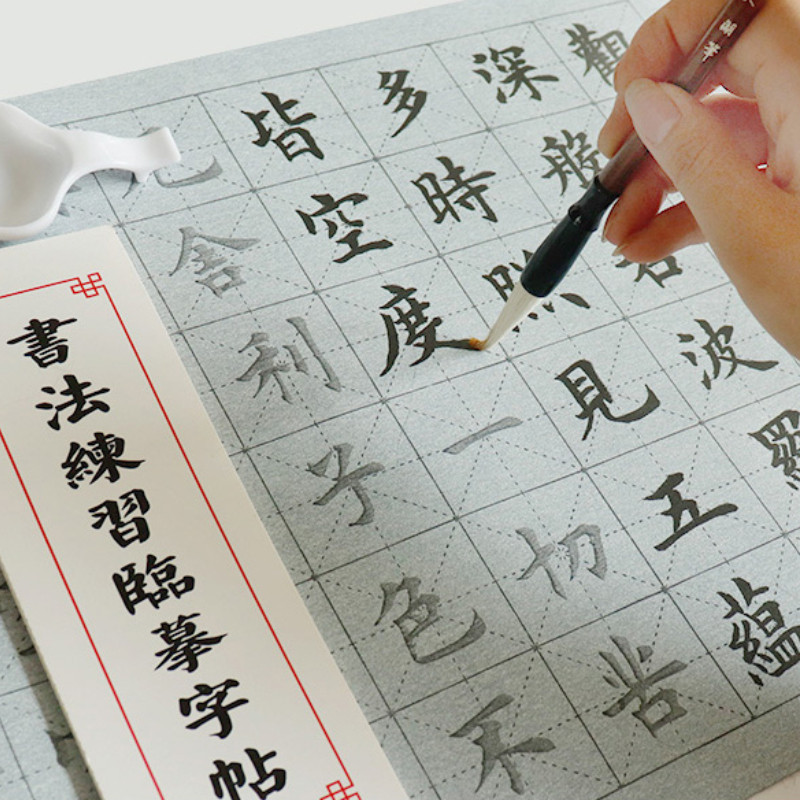 觀
深般若波羅
多時照見五蘊
皆空度一切苦
舍利子色不
書法練習臨摹字帖